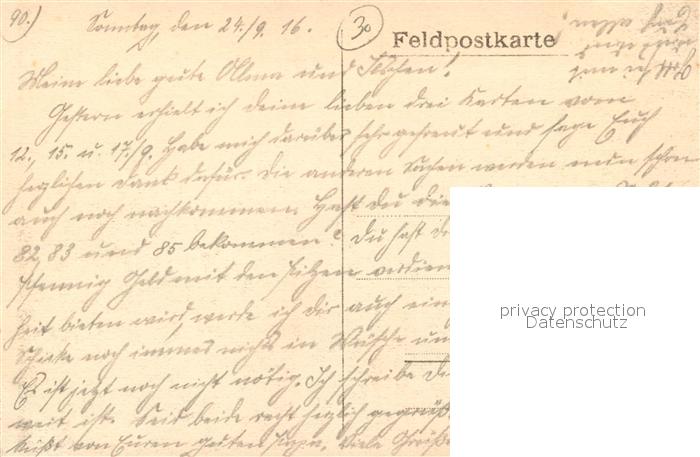 90.) Sonntag, den 24./9. 16. 30 Feldpostkarte
Meine liebe gute Alma und Ilschen!
Gestern erhielt ich deine lieben drei Karten vom
12., 15. u. 17./9. Habe mich darüber sehr gefreut und sage Euch
herzlichen Dank dafür. Die anderen Sachen werden nun schon
auch noch nachkommen. Hast Du die
82, 83 und 85 bekommen? Du hast
Pfennig Geld mit den Pilzen verdien
heit bieten wird, werde ich dir auch ein
Schicke noch immer nichts in Wäsche un
Es ist jetzt noch nicht nötig. Ich schreibe
weit ist. Seid beide recht herzlich gegrüß
küßt von Euren guten Papa. Viele Grüße
privacy protection
Datenschutz